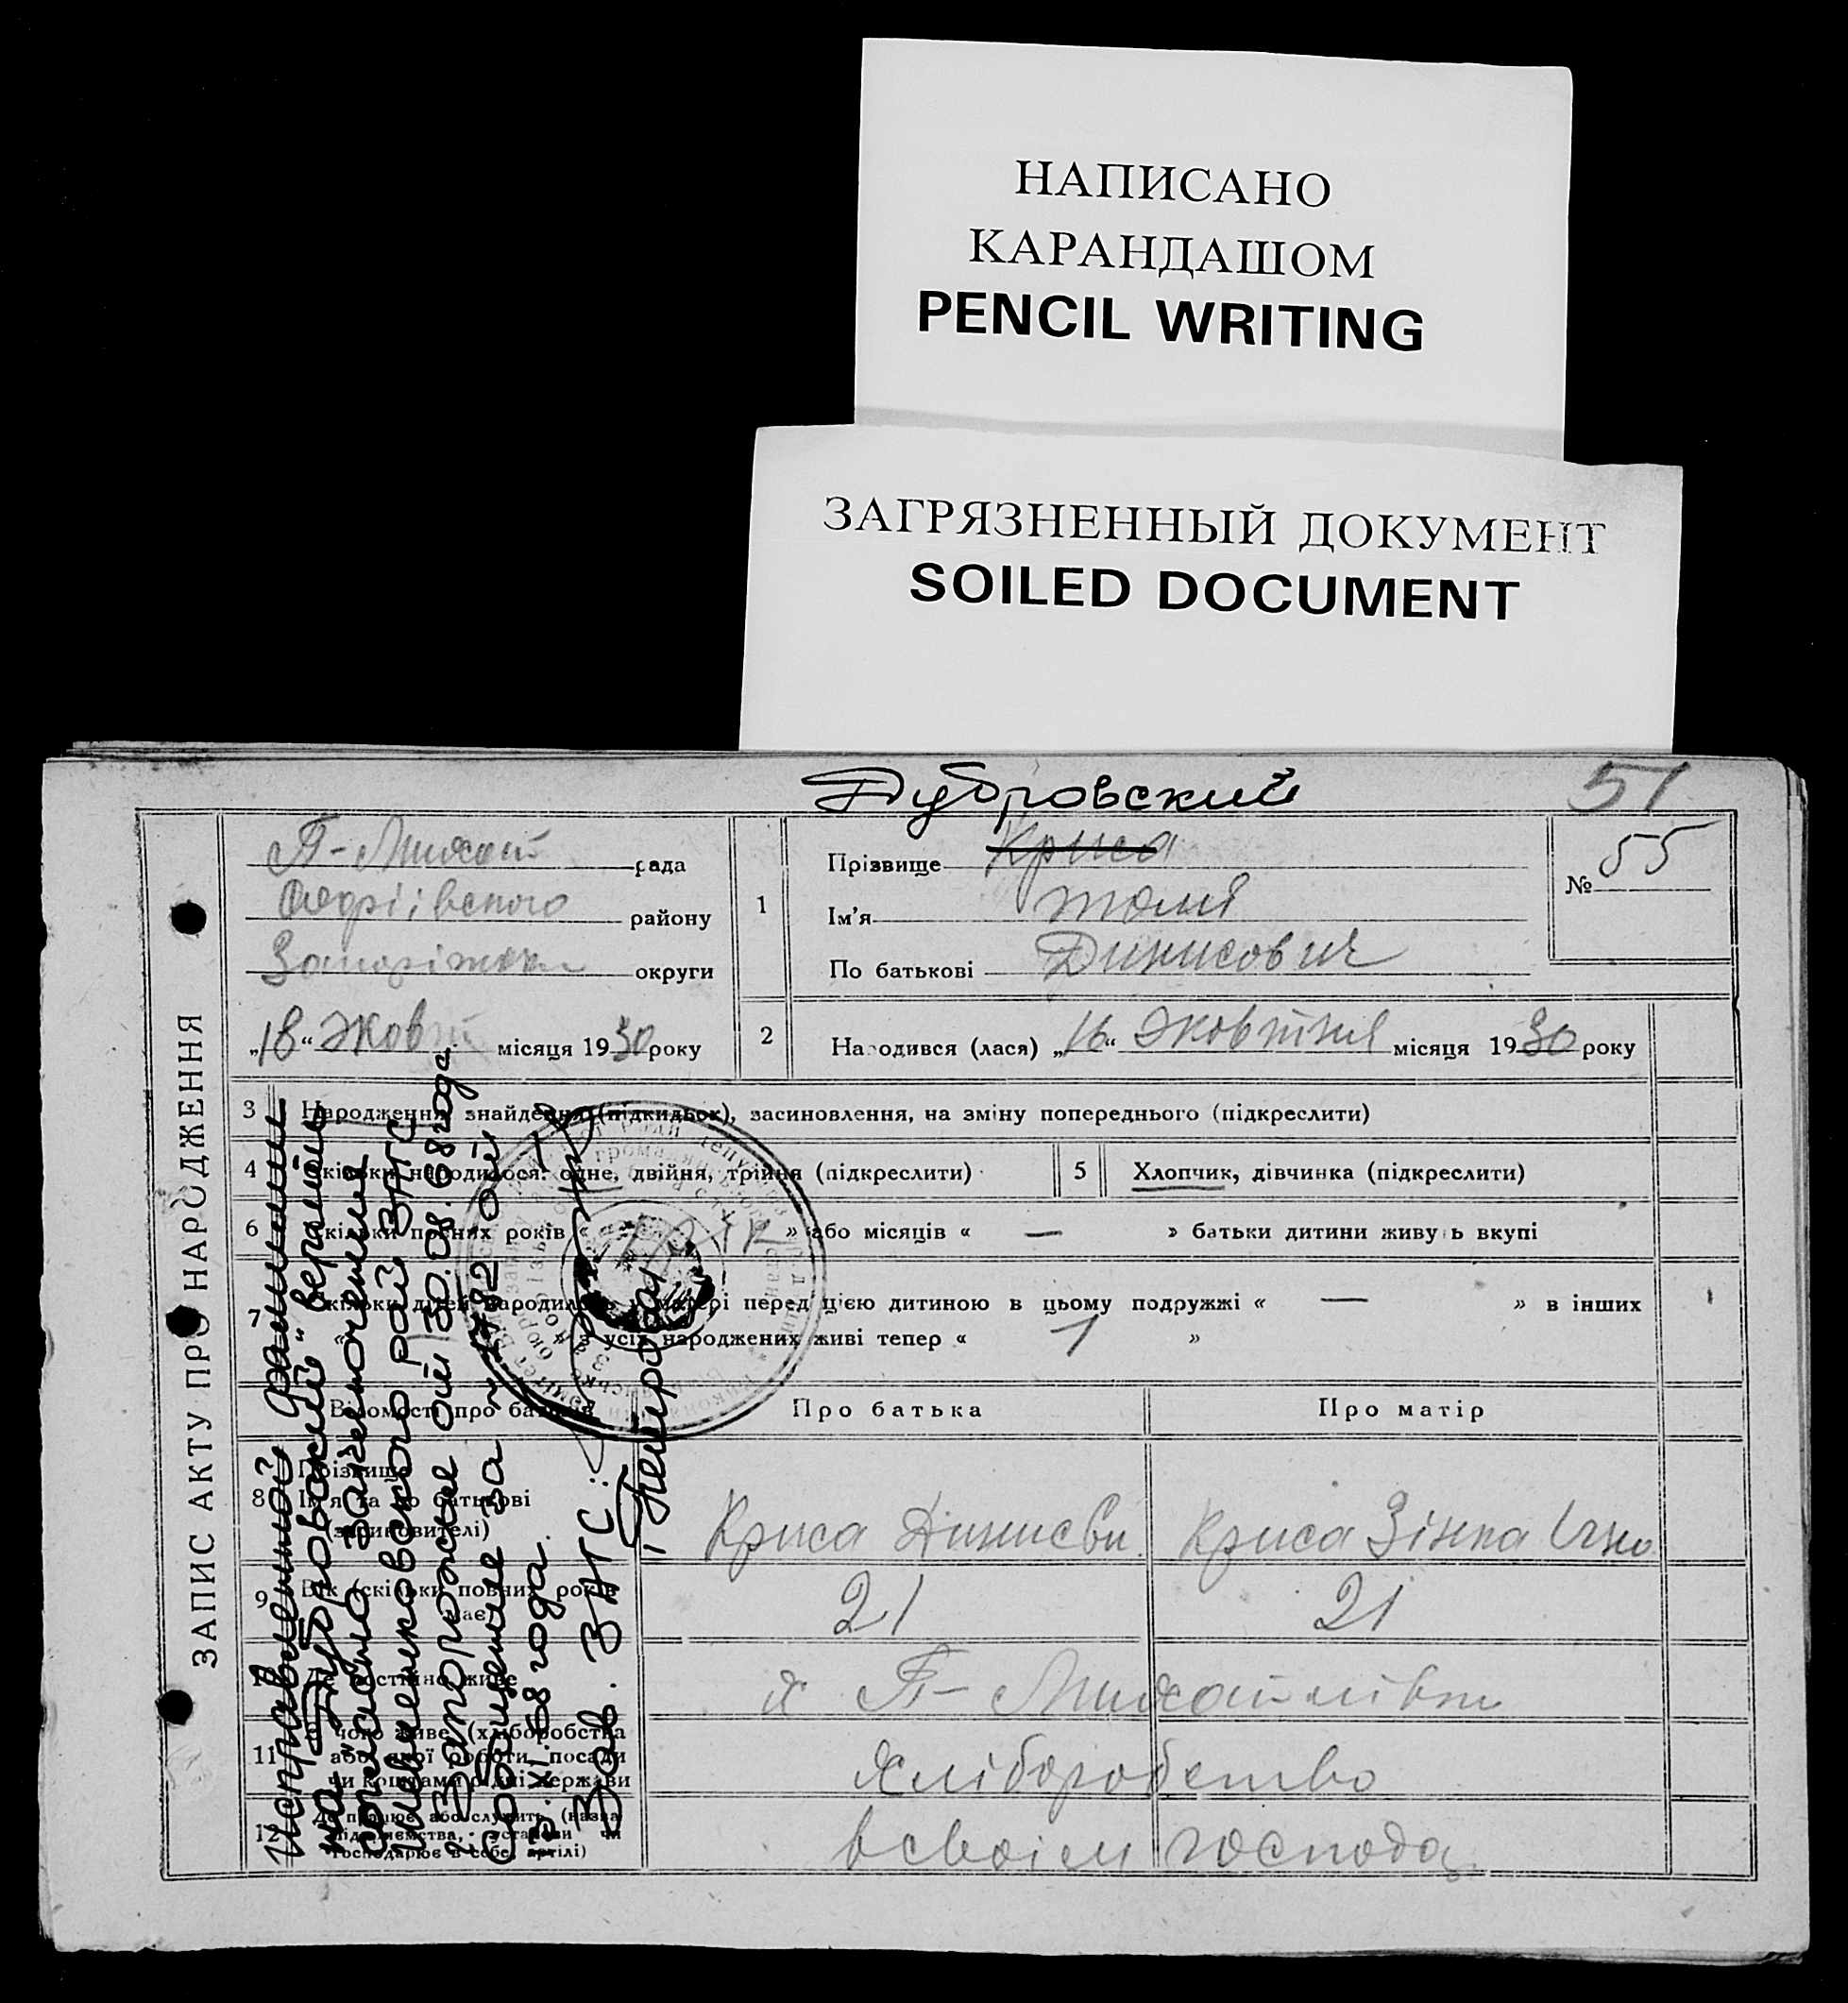 НАПИСАНО
КАРАНДАШОМ
PENCIL WRITING
ЗАГРЯЗНЕННЫЙ ДОКУМЕНТ
SOILED DOCUMENT
Дубровский
51
ЗАПИС АКТУ ПРО НАРОДЖЕННЯ
рада
району
округи
„18“ Жовт місяця 1930 року
1
Прізвище Криса
Ім'я Толя
По батькові Динисович
№ 55
2
Народився (лася) „16“ Жовтня місяця 1930 року
3 Народження, знайдення (підкидьок), засиновлення, на зміну попереднього (підкреслити)
4 Скільки народилося: одне, двійня, трійня (підкреслити)
5 Хлопчик, дівчинка (підкреслити)
6 Скільки повних років « » або місяців « — » батьки дитини живуть вкупі
7 Скільки дітей народилось у матері перед цією дитиною в цьому подружжі « — » в інших
« — » з усіх народжених живі тепер « 1 »
Відомості про батьків
Про батька
Про матір
8 Прізвище
Ім'я та по батькові
(засиновителі)
Криса
Криса Зінка
9 Вік (скільки повних років
має)
21
21
10 Де постійно живе
х П-Михайлівка
11 З чого живе (хліборобства
або якої роботи, посади
чи коштами рідні, держави
Хліборобство
12 Де працює або служить (назва
підприємства, установи чи
господарює в себе, артілі)
в своїм господа
Исправленной фамилии
на „Дубровский" верить
согласно заключения
Шевченковского рай ЗАГС
г Запорожье от 30.08.68 года.
Сообщение за №
5.XI.68 года.
Зав. ЗАГС: